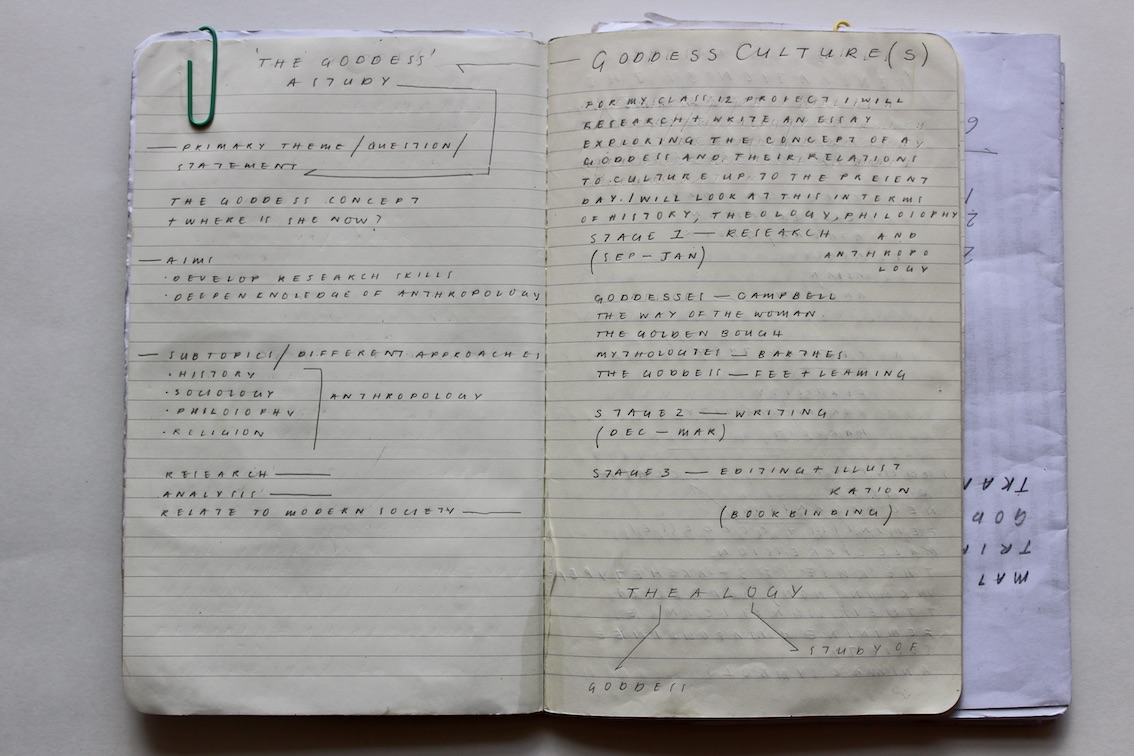 'THE GODDESS'
A STUDY
— PRIMARY THEME/QUESTION/
STATEMENT
THE GODDESS CONCEPT
+ WHERE IS SHE NOW?
— AIMS
· DEVELOP RESEARCH SKILLS
· DEEPEN KNOLEDGE OF ANTHROPOLOGY
— SUBTOPICS/DIFFERENT APPROACHES
· HISTORY
· SOCIOLOGY
ANTHROPOLOGY
· PHILOSOPHY
· RELIGION
RESEARCH ——
ANALYSIS ——
RELATE TO MODERN SOCIETY ——
— GODDESS CULTURE(S)
FOR MY CLASS 12 PROJECT I WILL
RESEARCH + WRITE AN ESSAY
EXPLORING THE CONCEPT OF A
GODDESS AND THEIR RELATIONS
TO CULTURE UP TO THE PRESENT
DAY. I WILL LOOK AT THIS IN TERMS
OF HISTORY, THEOLOGY, PHILOSOPHY
AND
ANTHROPO
LOGY
STAGE 1 — RESEARCH
(SEP — JAN)
GODDESSES — CAMPBELL
THE WAY OF THE WOMAN.
THE GOLDEN BOUGH
MYTHOLOGIES — BARTHES
THE GODDESS — FEE + LEAMING
STAGE 2 — WRITING
(DEC — MAR)
STAGE 3 — EDITING + ILLUST
RATION
(BOOKBINDING)
THEALOGY
STUDY OF
GODDESS